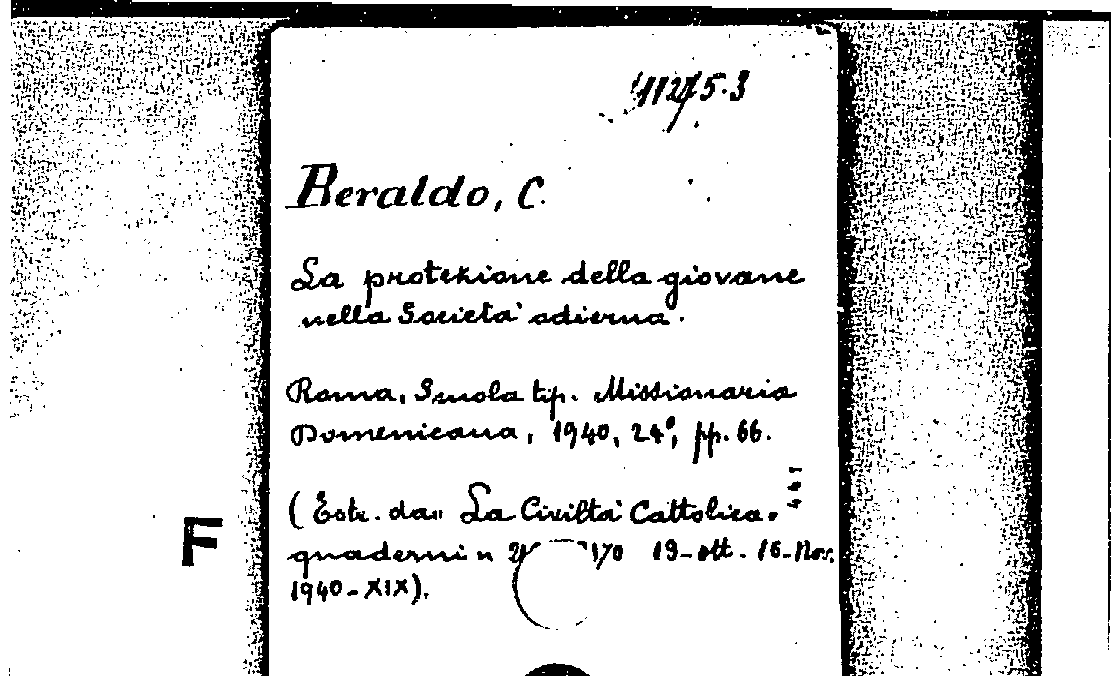 Beraldo, C.
La protezione della giovane
nella Società odierna.
Roma, Scuola tip. Missionaria
Domenicana, 1940, 24°, pp. 66.
(Estr. da " La Civiltà Cattolica.
F
quaderni n 170 19-ott. 16-Nov.
1940-XIX).